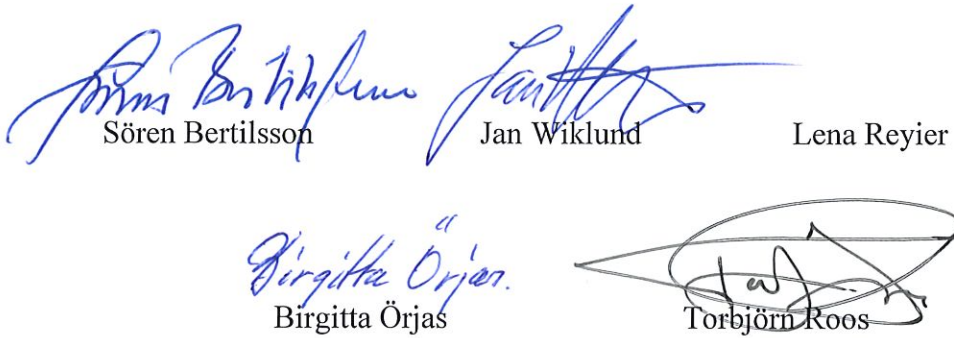 Sören Bertilsson Jan Wiklund
Sören Bertilsson Jan Wiklund Lena Reyier
Birgitta Örjas.
Birgitta Örjas Torbjörn Roos